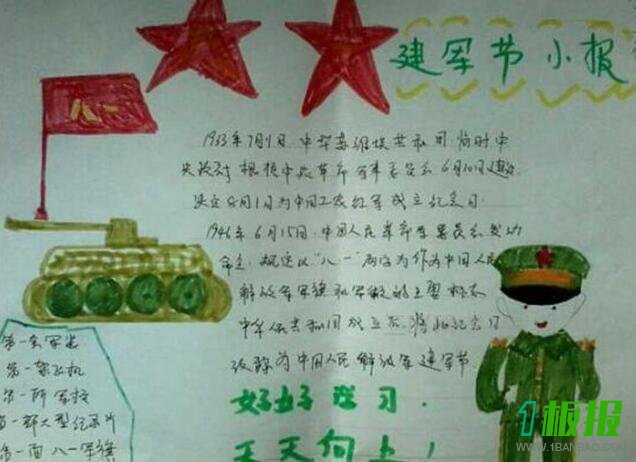 建军节小报
八一
1933年7月1日,中华苏维埃共和国临时中
央政府根据中央革命军事委员会6月 日建议
决定8月1日为中国工农红军成立纪念日.
1946年6月15日,中国人民革命军 委员会发
命令,规定以"八一"两字为作为中国人民
解放军军旗和军徽的主要标志
中华人民共和国成立后,将此纪念日
改称为中国人民解放军建军节
第一套军装
第一架飞机
第一所军校
第一部大型纪录片
第一面八一军旗
好好学习.
天天向上!
1板报
WWW.1BANBAO.COM